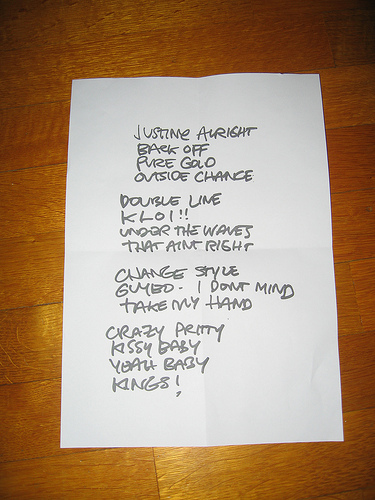 JUSTINE ALRIGHT
BACK OFF
PURE GOLD
OUTSIDE CHANCE
DOUBLE LINE
KLOI!!
UNDER THE WAVES
THAT AINT RIGHT
CHANGE STYLE
I DONT MIND
TAKE MY HAND
CRAZY PRITTY
KISSY BABY
YEAH BABY
KINGS!